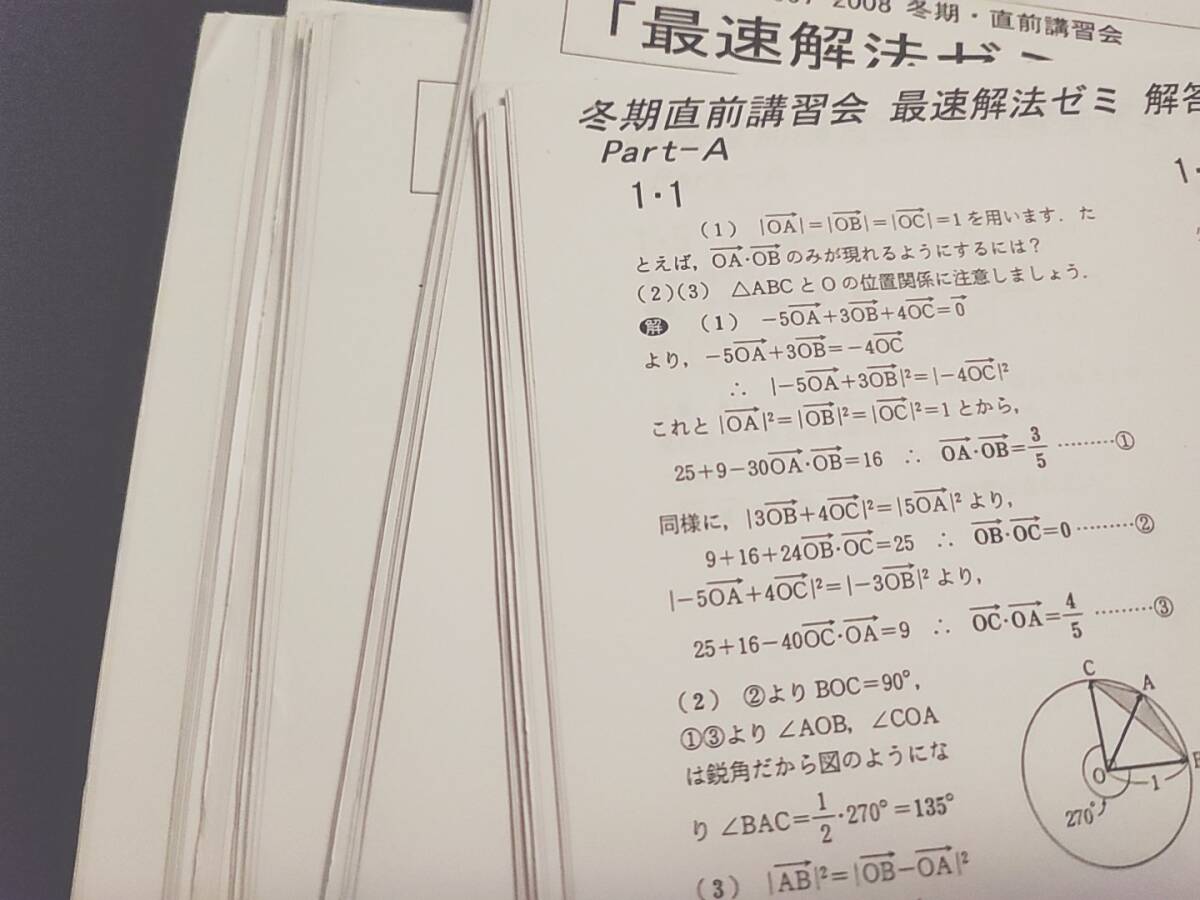 2008 冬期・直前講習会
「最速解法ゼミ
冬期直前講習会 最速解法ゼミ 解答
Part-A
1・1
(1) |OA→|=|OB→|=|OC→|=1を用います. た
とえば, OA→・OB→のみが現れるようにするには?
(2)(3) △ABCとOの位置関係に注意しましょう.
解 (1) -5OA→+3OB→+4OC→=0→
より, -5OA→+3OB→=-4OC→
∴ |-5OA→+3OB→|²=|-4OC→|²
これと |OA→|²=|OB→|²=|OC→|²=1とから,
25+9-30OA→・OB→=16 ∴ OA→・OB→=3/5 ………①
同様に, |3OB→+4OC→|²=|5OA→|²より,
9+16+24OB→・OC→=25 ∴ OB→・OC→=0 ………②
|-5OA→+4OC→|²=|-3OB→|²より,
25+16-40OC→・OA→=9 ∴ OC→・OA→=4/5 ………③
(2) ②よりBOC=90°,
①③より∠AOB, ∠COA
は鋭角だから図のようにな
り ∠BAC=1/2・270°=135°
(3) |AB→|²=|OB→-OA→|²
C
A
B
O
1
270°